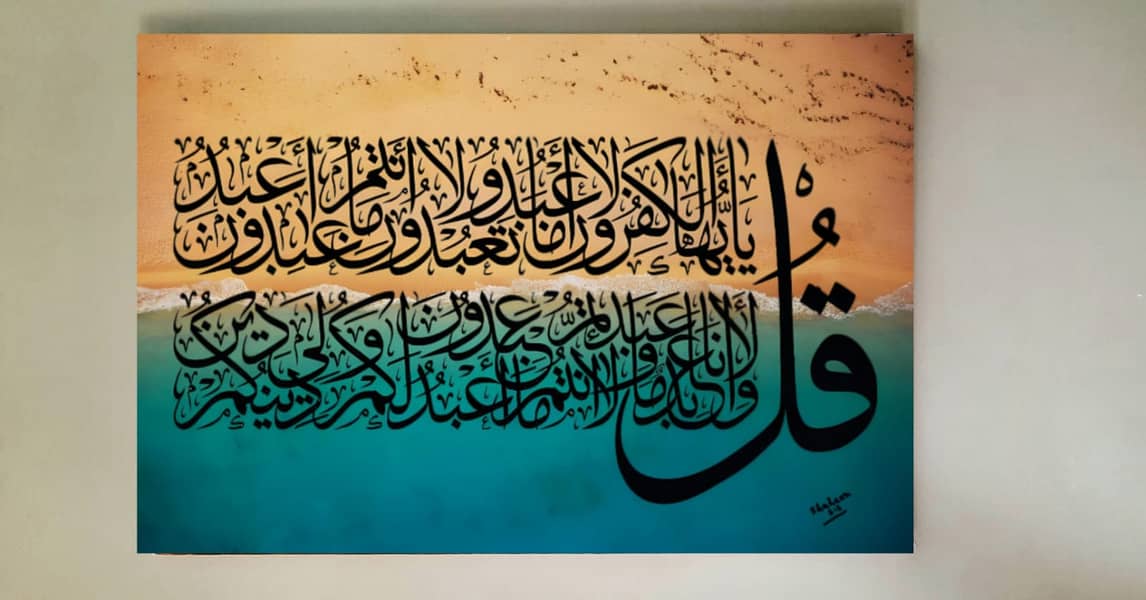 قُلْ
يَا أَيُّهَا الْكَفِرُونَ لَا أَعْبُدُ مَا تَعْبُدُونَ وَلَا أَنْتُمْ عَابِدُونَ مَا أَعْبُدُ
وَلَا أَنَا عَابِدٌ مَا عَبَدْتُمْ وَلَا أَنْتُمْ عَابِدُونَ مَا أَعْبُدُ لَكُمْ دِينُكُمْ وَلِيَ دِينِ